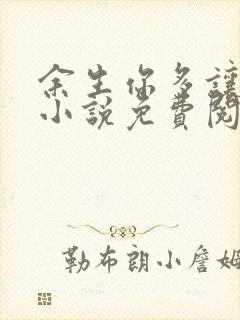 余生你多讓
小說免費閱
勒布朗小詹姆